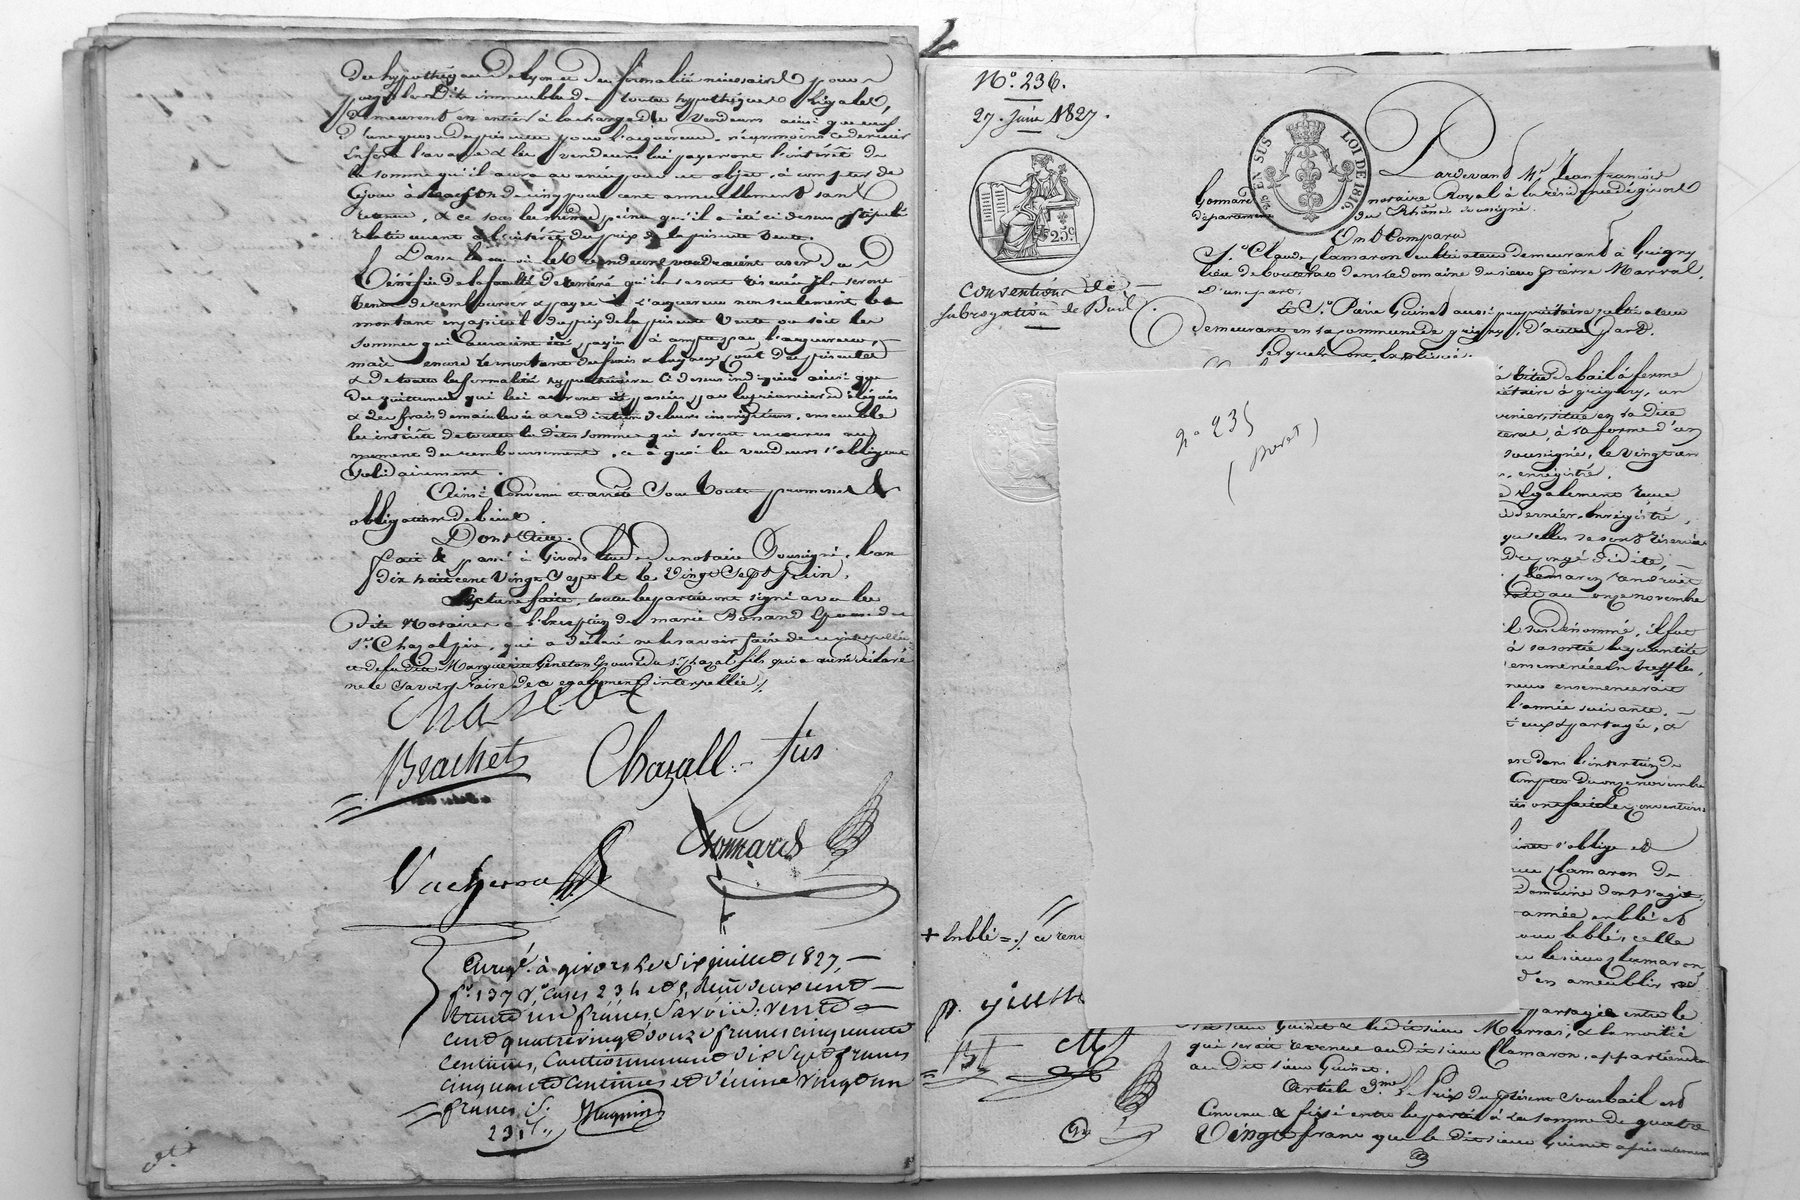 des hypothèques de Lyon et des formalités nécessaires pour
purger les dits immeubles de toutes hypothèques légales,
demeurent en entier à la charge des vendeurs ainsi que
l'acquéreur néanmoins ce dernier
en fera l'avance & les vendeurs lui payeront l'intérêt de
la somme qu'il aura avancée pour cet objet, à compter de
ce jour à raison de cinq pour cent annuellement sans
retenue, & ce sous les mêmes peines qu'il a été ci dessus stipulé
relativement à l'intérêt du prix de la présente vente.
Dans le cas où les vendeurs voudraient user du
bénéfice de la faculté de réméré qu'ils se sont réservée ils seront
tenus de rembourser & payer à l'acquéreur non seulement le
montant en capital du prix de la présente vente ou soit les
sommes qui auraient été payées à compte par l'acquéreur,
mais encore le montant des frais & loyaux coûts des présentes
& de toutes les formalités hypothécaires ci dessus indiquées ainsi que
des quittances qui lui auront été passées par les créanciers délégués
& les frais de mainlevée & radiation de leurs inscriptions, ensemble
les intérêts de toutes les dites sommes qui seront encourus au
moment du remboursement, ce à quoi les vendeurs s'obligent
solidairement.
Ainsi convenu et arrêté sous toutes promesses &
obligations de biens.
Dont acte.
fait & passé à Givors étude du notaire soussigné, l'an
dix huit cent vingt sept & le vingt sept juin.
Lecture faite, toutes les parties ont signé avec les
dits notaires à l'exception de marie Bonand épouse du
Sr. Chazal père, qui a déclaré ne le savoir faire de ce interpellée
et de la dite Marguerite Géneton épouse du Sr. chazal fils qui a aussi déclaré
ne le savoir faire de ce également interpellée
Chazal
Brachet
Chazall fils
Vacheron
Gonnard
Enregé. à givors le six juillet 1827,
fo. 137 Vo. cases 2 3 4 et 5, reçu deux cent
trente un francs, Savoir: vente
cent quatre vingt douze francs cinquante
centimes, Cautionnement dix sept francs
cinquante centimes et dixième vingt un
francs
231
No. 236.
27. Juin 1827.
25 EN SUS
LOI DE 1816.
25c
Convention de
subrogation de Bail
Pardevant Me. Jean françois
Gonnard notaire Royal à la résidence de givors
département du Rhône soussigné
Ont Comparu
Sr. Claude flamaron cultivateur demeurant à Grigny
lieu de bouteras dans le domaine du sieur pierre Marral,
d'une part,
& Sr. Pierre Guinet aussi propriétaire cultivateur
demeurant en la commune de grigny, d'autre part.
Lesquels ont
no 235
(Brevet)
à titre de bail à ferme
à grigny, un
située en la dite
à la forme d'un
soussigné, le vingt un
enregistré.
également reçu
dernier, Enregistré,
qu'elles se sont réservées
congé dédite,
au onze novembre
dénommé, il fut
à sa sortie la quantité
ensemencerait
l'année suivante.
& partagée, &
est dans l'intention de
compter du onze novembre
conventions
s'oblige et
flamaron de
domaine dont s'agit
année en blé et
le blé, celle
le sieur flamaron
d'en ameublir
+ en blé = / ce renv
partagée entre le
sieur Guinet & le dit sieur Marral, & la moitié
qui serait revenue au dit sieur flamaron, appartiendra
au dit sieur Guinet.
article 3me. Le Prix du présent Sous bail est
Convenu & fixé entre les parties à la somme de quatre
Vingt francs que le dit sieur Guinet a présentement